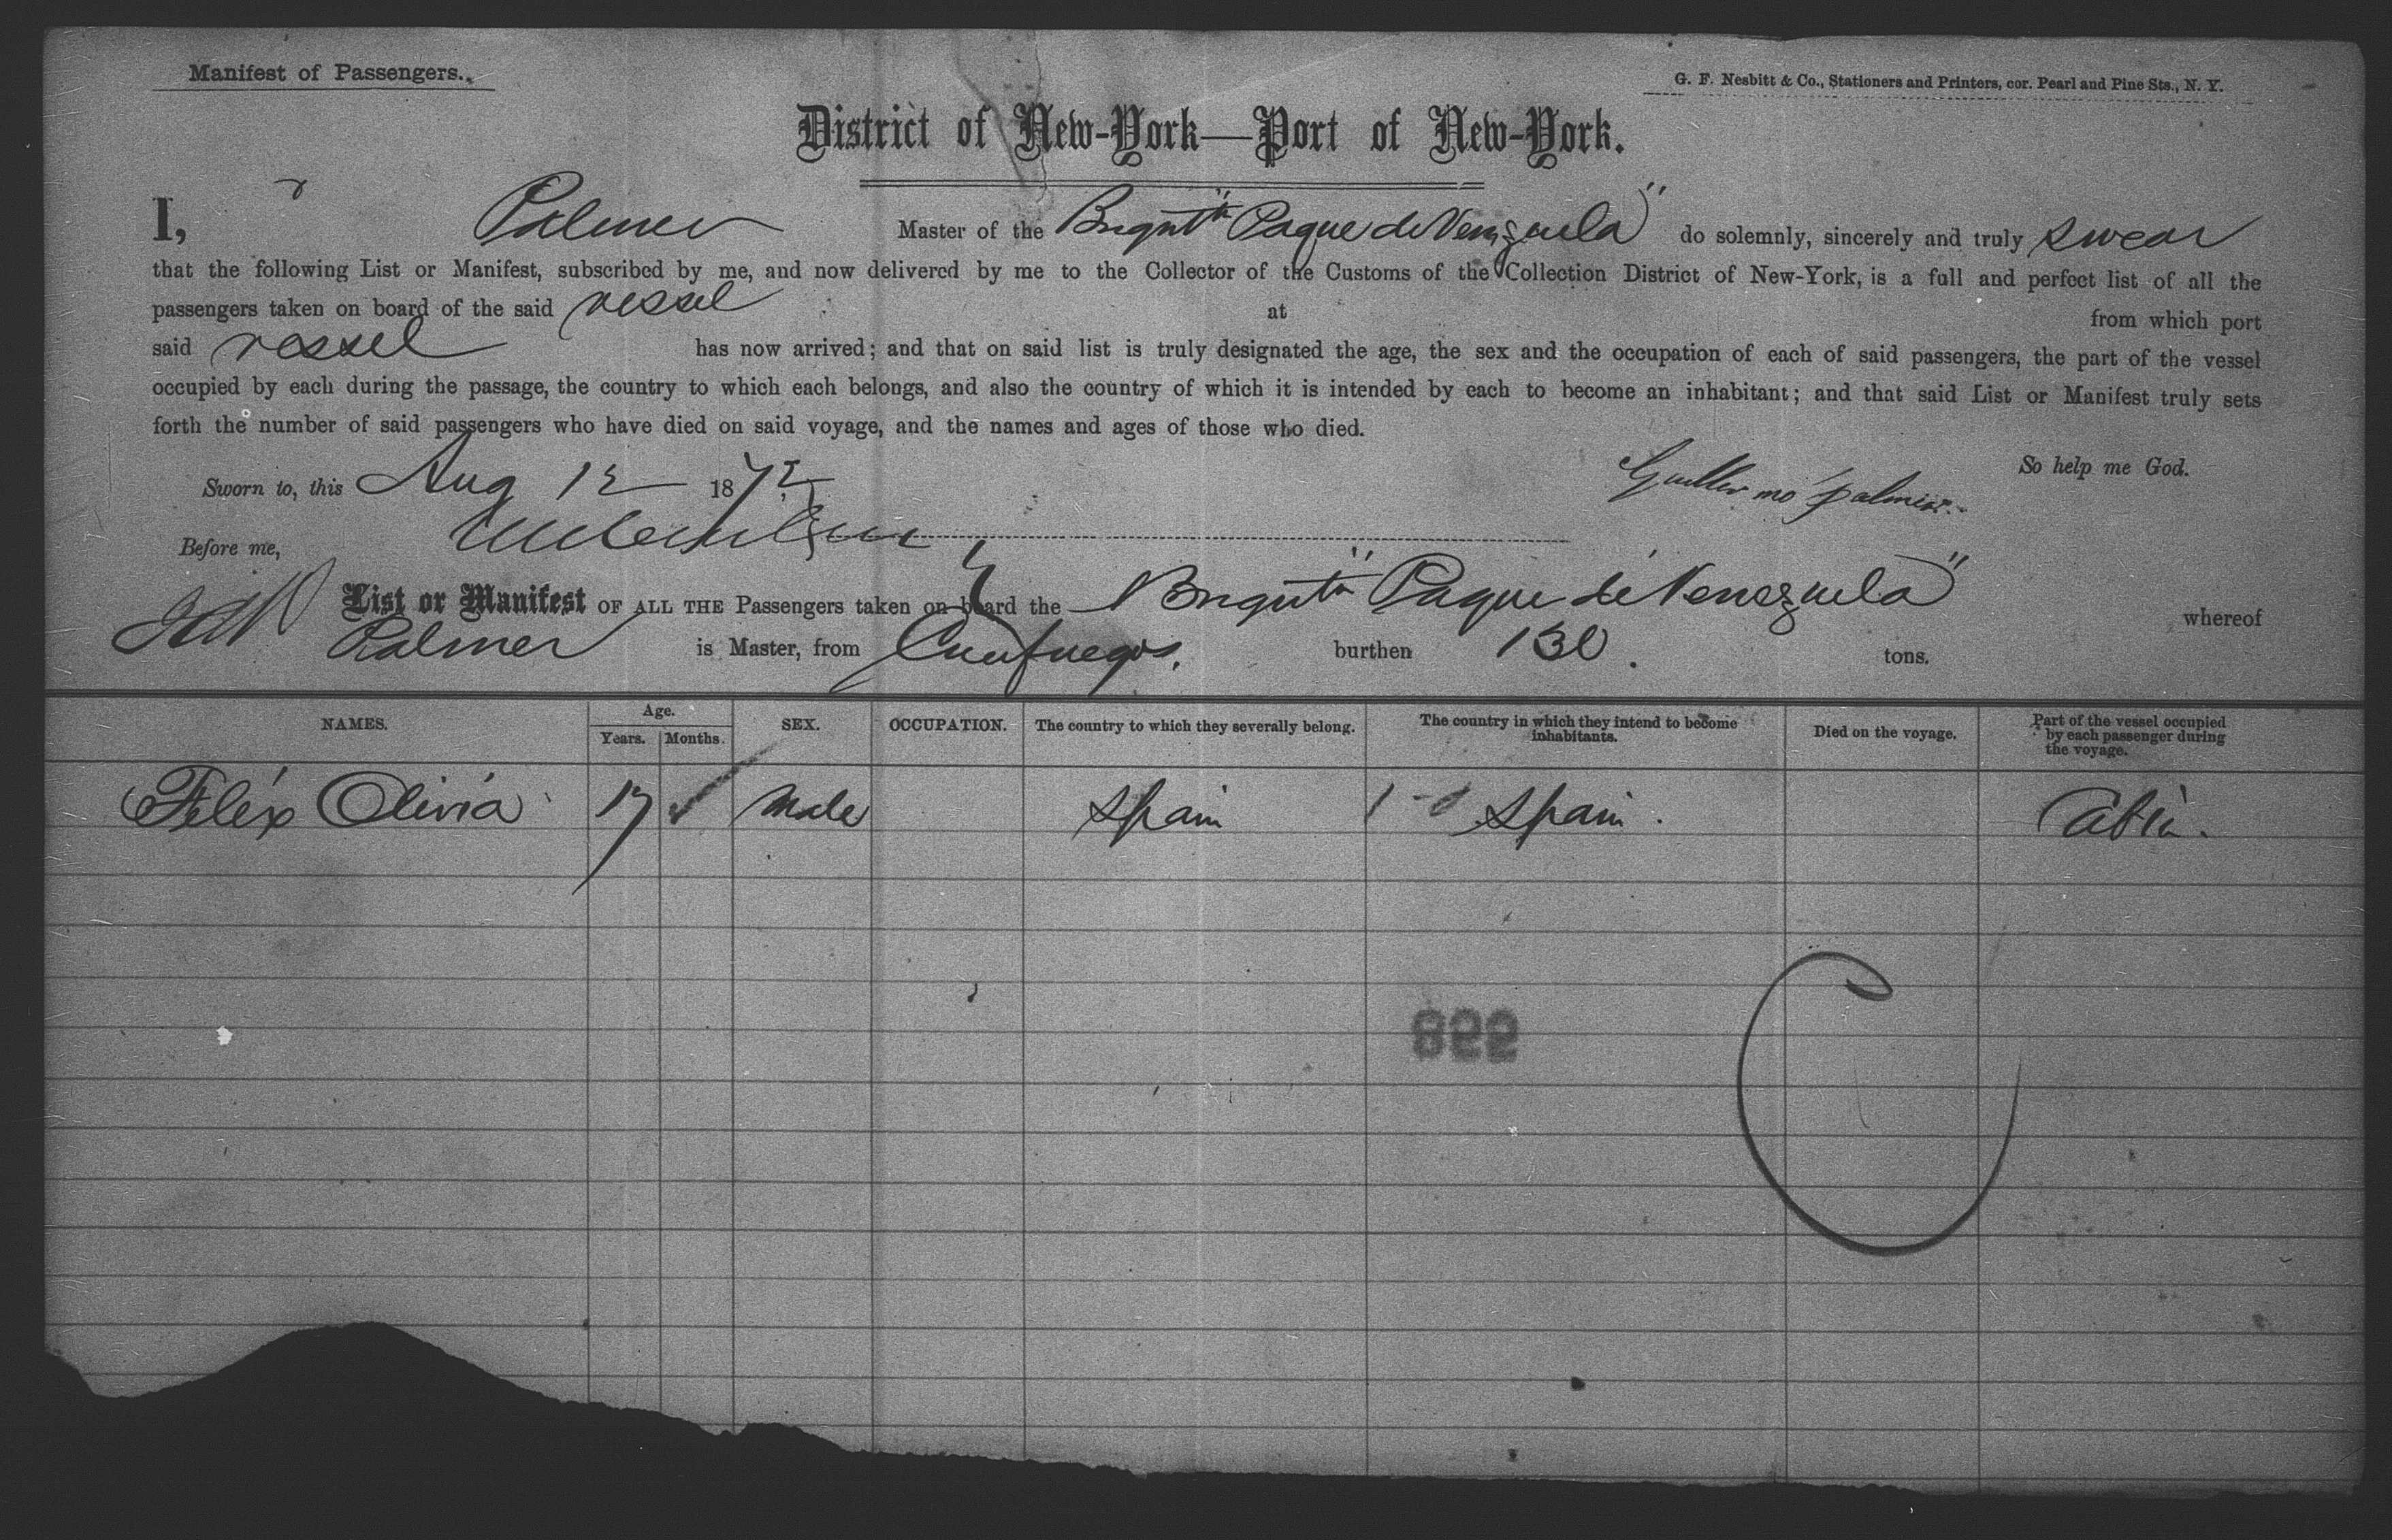 Manifest of Passengers.
G. F. Nesbitt & Co., Stationers and Printers, cor. Pearl and Pine Sts., N. Y.
District of New-York—Port of New-York.
I, Palmer Master of the Brignt "Paque de Venezuela" do solemnly, sincerely and truly swear
that the following List or Manifest, subscribed by me, and now delivered by me to the Collector of the Customs of the Collection District of New-York, is a full and perfect list of all the
passengers taken on board of the said vessel at from which port
said vessel has now arrived; and that on said list is truly designated the age, the sex and the occupation of each of said passengers, the part of the vessel
occupied by each during the passage, the country to which each belongs, and also the country of which it is intended by each to become an inhabitant; and that said List or Manifest truly sets
forth the number of said passengers who have died on said voyage, and the names and ages of those who died.
So help me God.
Sworn to, this Aug 12 1872 Guillermo Palmer
Before me,
List or Manifest OF ALL THE Passengers taken on board the Brignt "Paque de Venezuela" whereof
Palmer is Master, from Cienfuegos. burthen 130. tons.
NAMES. Age. Years. Months. SEX. OCCUPATION. The country to which they severally belong. The country in which they intend to become inhabitants. Died on the voyage. Part of the vessel occupied by each passenger during the voyage.
Felix Olivia 17 Male Spain Spain. Cabin.